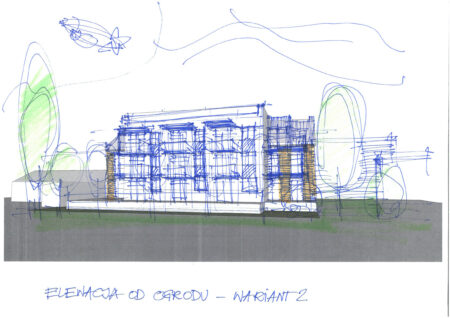 ELEWACJA OD OGRODU – WARIANT 2